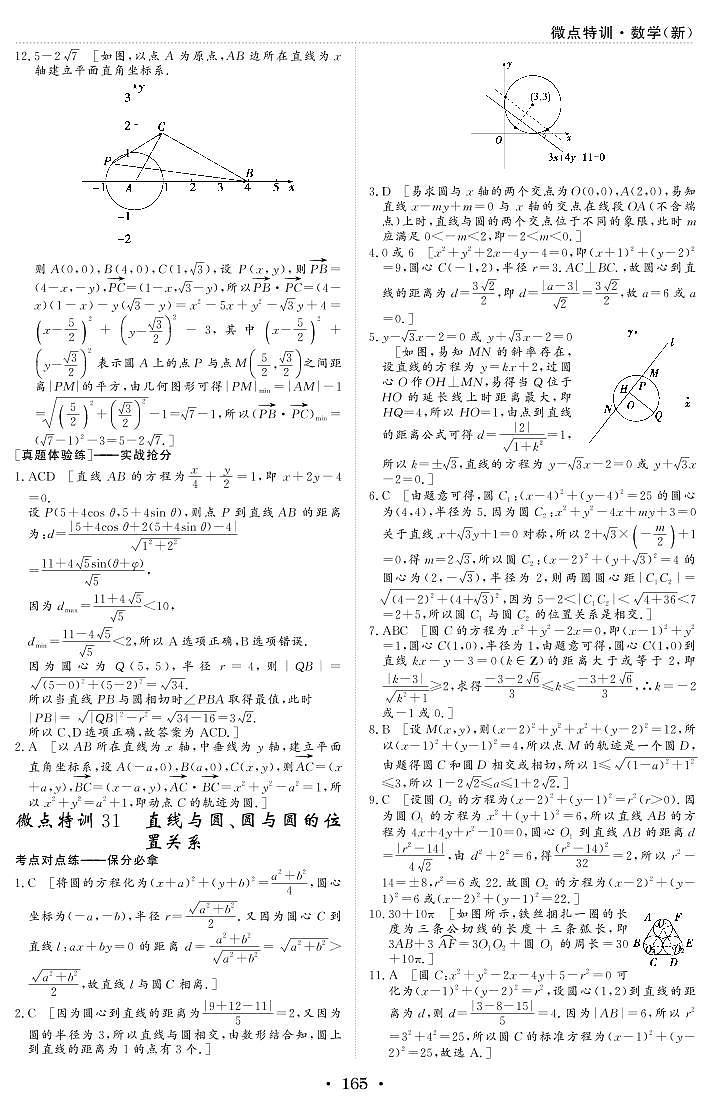 微点特训·数学(新)
12.5-2√7　[如图,以点 A 为原点,AB 边所在直线为 x
轴建立平面直角坐标系.
3 y
2
C
P 1
B
-1 A 1 2 3 4 5 x
-1
-2
则 A(0,0),B(4,0),C(1,√3),设 P(x,y),则PB→=
(4-x,-y),PC→=(1-x,√3-y),所以PB→·PC→=(4-
x)(1-x)-y(√3-y)=x²-5x+y²-√3y+4=
(x-5/2)²+(y-√3/2)²-3,其中(x-5/2)²+
(y-√3/2)²表示圆 A 上的点 P 与点 M(5/2,√3/2)之间距
离|PM|的平方,由几何图形可得|PM|min=|AM|-1
=√((5/2)²+(√3/2)²)-1=√7-1,所以(PB→·PC→)min=
(√7-1)²-3=5-2√7.]
[真题体验练]——实战抢分
1.ACD　[直线 AB 的方程为x/4+y/2=1,即 x+2y-4
=0.
设 P(5+4cos θ,5+4sin θ),则点 P 到直线 AB 的距离
为:d=|5+4cos θ+2(5+4sin θ)-4|/√(1²+2²)
=(11+4√5sin(θ+φ))/√5,
因为 dmax=(11+4√5)/√5<10,
dmin=(11-4√5)/√5<2,所以 A 选项正确,B 选项错误.
因为圆心为 Q(5,5),半径 r=4,则|QB|=
√((5-0)²+(5-2)²)=√34.
所以当直线 PB 与圆相切时∠PBA 取得最值,此时
|PB|=√(|QB|²-r²)=√(34-16)=3√2.
所以 C、D 选项正确,故答案为 ACD.]
2.A　[以 AB 所在直线为 x 轴,中垂线为 y 轴,建立平面
直角坐标系,设 A(-a,0),B(a,0),C(x,y),则AC→=(x
+a,y),BC→=(x-a,y),AC→·BC→=x²+y²-a²=1,所
以 x²+y²=a²+1,即动点 C 的轨迹为圆.]
微点特训 31　直线与圆、圆与圆的位
置关系
考点对点练——保分必拿
1.C　[将圆的方程化为(x+a)²+(y+b)²=(a²+b²)/4,圆心
坐标为(-a,-b),半径 r=√(a²+b²)/2.又因为圆心 C 到
直线 l:ax+by=0 的距离 d=(a²+b²)/√(a²+b²)=√(a²+b²)>
√(a²+b²)/2,故直线 l 与圆 C 相离.]
2.C　[因为圆心到直线的距离为|9+12-11|/5=2,又因为
圆的半径为 3,所以直线与圆相交,由数形结合知,圆上
到直线的距离为 1 的点有 3 个.]
y
(3,3)
O x
3x+4y 11=0
3.D　[易求圆与 x 轴的两个交点为 O(0,0),A(2,0),易知
直线 x-my+m=0 与 x 轴的交点在线段 OA(不含端
点)上时,直线与圆的两个交点位于不同的象限,此时 m
应满足 0<-m<2,即-2<m<0.]
4.0 或 6　[x²+y²+2x-4y-4=0,即(x+1)²+(y-2)²
=9,圆心 C(-1,2),半径 r=3.AC⊥BC.,故圆心到直
线的距离为 d=3√2/2,即 d=|a-3|/√2=3√2/2,故 a=6 或 a
=0.]
5.y-√3x-2=0 或 y+√3x-2=0
[如图,易知 MN 的斜率存在,
设直线的方程为 y=kx+2,过圆
心 O 作 OH⊥MN,易得当 Q 位于
HO 的延长线上时距离最大,即
HQ=4,所以 HO=1,由点到直线
的距离公式可得 d=|2|/√(1+k²)=1,
y
l
M
H P
O
N Q
x
所以 k=±√3,直线的方程为 y-√3x-2=0 或 y+√3x
-2=0.]
6.C　[由题意可得,圆 C₁:(x-4)²+(y-4)²=25 的圆心
为(4,4),半径为 5.因为圆 C₂:x²+y²-4x+my+3=0
关于直线 x+√3y+1=0 对称,所以 2+√3×(-m/2)+1
=0,得 m=2√3,所以圆 C₂:(x-2)²+(y+√3)²=4 的
圆心为(2,-√3),半径为 2,则两圆圆心距|C₁C₂|=
√((4-2)²+(4+√3)²),因为 5-2<|C₁C₂|<√(4+36)<7
=2+5,所以圆 C₁ 与圆 C₂ 的位置关系是相交.]
7.ABC　[圆 C 的方程为 x²+y²-2x=0,即(x-1)²+y²
=1,圆心 C(1,0),半径为 1,由题意可得,圆心 C(1,0)到
直线 kx-y-3=0(k∈Z)的距离大于或等于 2,即
|k-3|/√(k²+1)≥2,求得(-3-2√6)/3≤k≤(-3+2√6)/3,∴k=-2
或-1 或 0.]
8.B　[设 M(x,y),则(x-2)²+y²+x²+(y-2)²=12,所
以(x-1)²+(y-1)²=4,所以点 M 的轨迹是一个圆 D,
由题得圆 C 和圆 D 相交或相切,所以 1≤√((1-a)²+1²)
≤3,所以 1-2√2≤a≤1+2√2.]
9.C　[设圆 O₂ 的方程为(x-2)²+(y-1)²=r²(r>0).因
为圆 O₁ 的方程为 x²+(y+1)²=6,所以直线 AB 的方
程为 4x+4y+r²-10=0,圆心 O₁ 到直线 AB 的距离 d
=|r²-14|/4√2,由 d²+2²=6,得(r²-14)²/32=2,所以 r²-
14=±8,r²=6 或 22.故圆 O₂ 的方程为(x-2)²+(y-
1)²=6 或(x-2)²+(y-1)²=22.]
10.30+10π　[如图所示,铁丝捆扎一圈的长
度为三条公切线的长度+三条弧长,即
3AB+3AF⌒=3O₁O₂+圆 O₁ 的周长=30
+10π.]
A F
B E
C D
11.A　[圆 C:x²+y²-2x-4y+5-r²=0 可
化为(x-1)²+(y-2)²=r²,设圆心(1,2)到直线的距
离为 d,则 d=|3-8-15|/5=4.因为|AB|=6,所以 r²
=3²+4²=25,所以圆 C 的标准方程为(x-1)²+(y-
2)²=25,故选 A.]
·165·